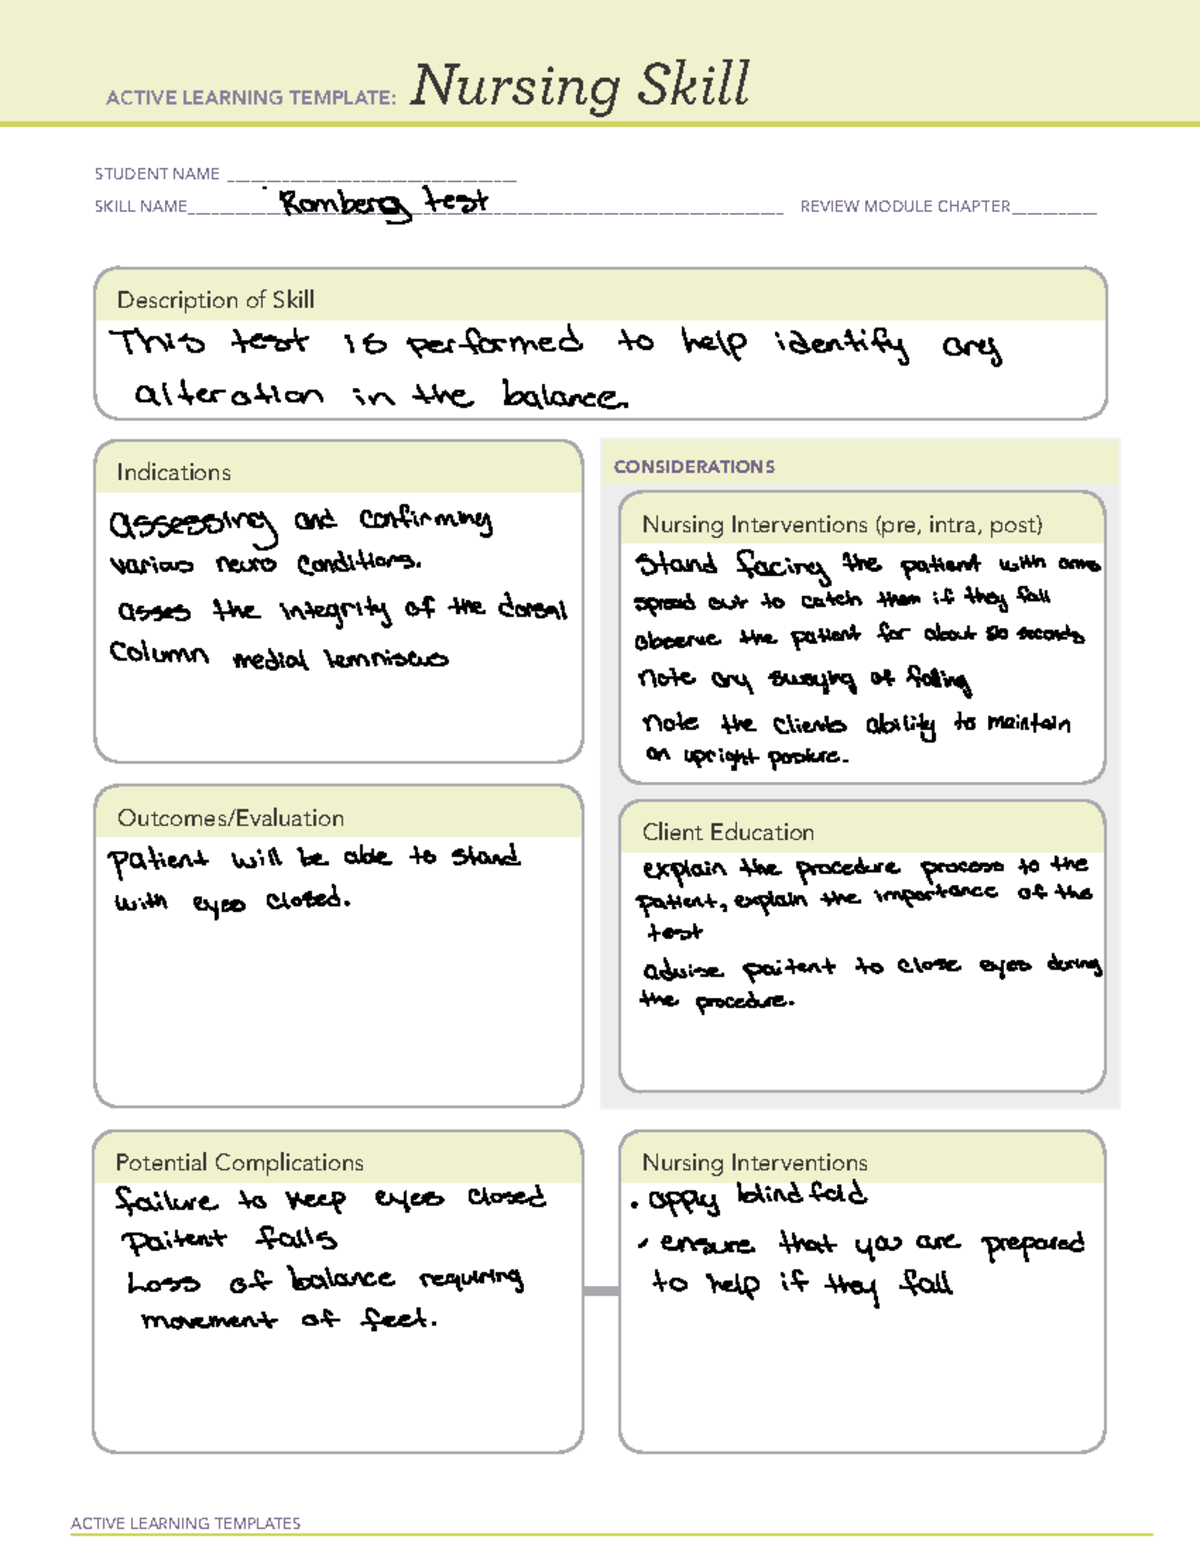 ACTIVE LEARNING TEMPLATE: Nursing Skill
STUDENT NAME
SKILL NAME Romberg test REVIEW MODULE CHAPTER
Description of Skill
This test is performed to help identify any
alteration in the balance.
Indications
assessing and confirming
various neuro conditions.
asses the integrity of the dorsal
column medial lemniscus
CONSIDERATIONS
Nursing Interventions (pre, intra, post)
Stand facing the patient with arms
spread out to catch them if they fall
observe the patient for about seconds
note any swaying of falling
note the clients ability to maintain
an upright posture.
Outcomes/Evaluation
patient will be able to stand
with eyes closed.
Client Education
explain the procedure process to the
patient, explain the importance of the
test
advise paitent to close eyes during
the procedure.
Potential Complications
failure to keep eyes closed
Paitent falls
Loss of balance requiring
movement of feet.
Nursing Interventions
• apply blindfold
• ensure that you are prepared
to help if they fall
ACTIVE LEARNING TEMPLATES